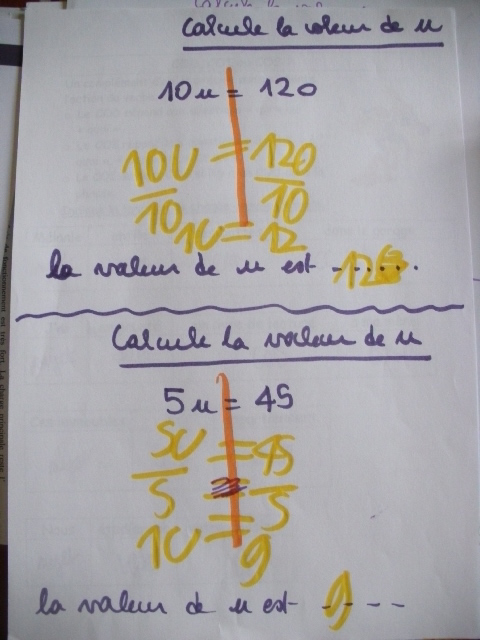 Calcule la valeur de u
10u = 120
10U = 120
10 10
1U = 12
la valeur de u est 12....
Calcule la valeur de u
5u = 45
5U = 45
5 = 5
1U = 9
la valeur de u est 9 - -